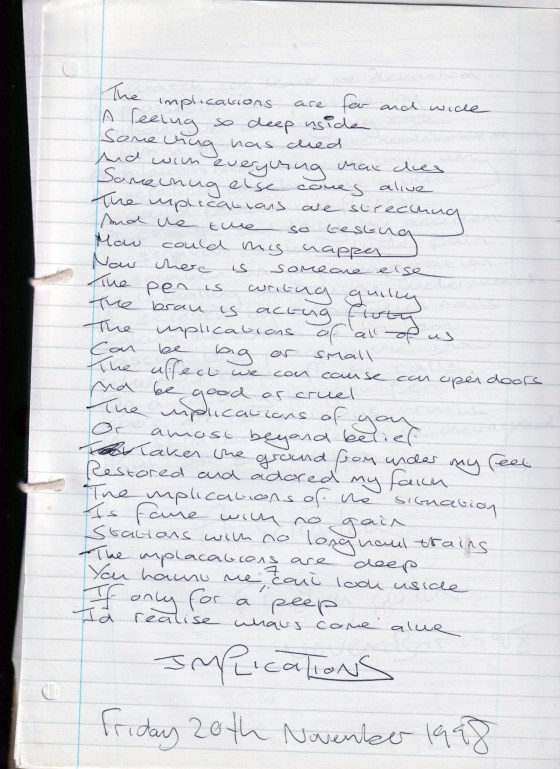 The implications are far and wide
A feeling so deep inside
Something has died
And with everything that dies
Something else comes alive
The implications are streching
And the time so testing
How could this happen
Now there is someone else
The pen is writing guilty
The brain is acting
The implications of all of us
Can be big or small
The affect we can cause can open doors
And be good or cruel
The implications of you
Or amost beyond belief
Taken the ground from under my feet
Restored and adored my faith
The implications of the situation
Is fame with no gain
Stations with no longhaul trains
The implacations are deep
You haunt me, I can't look inside
If only for a peep
I'd realise whats come alive
IMPLICATIONS
Friday 20th November 1998